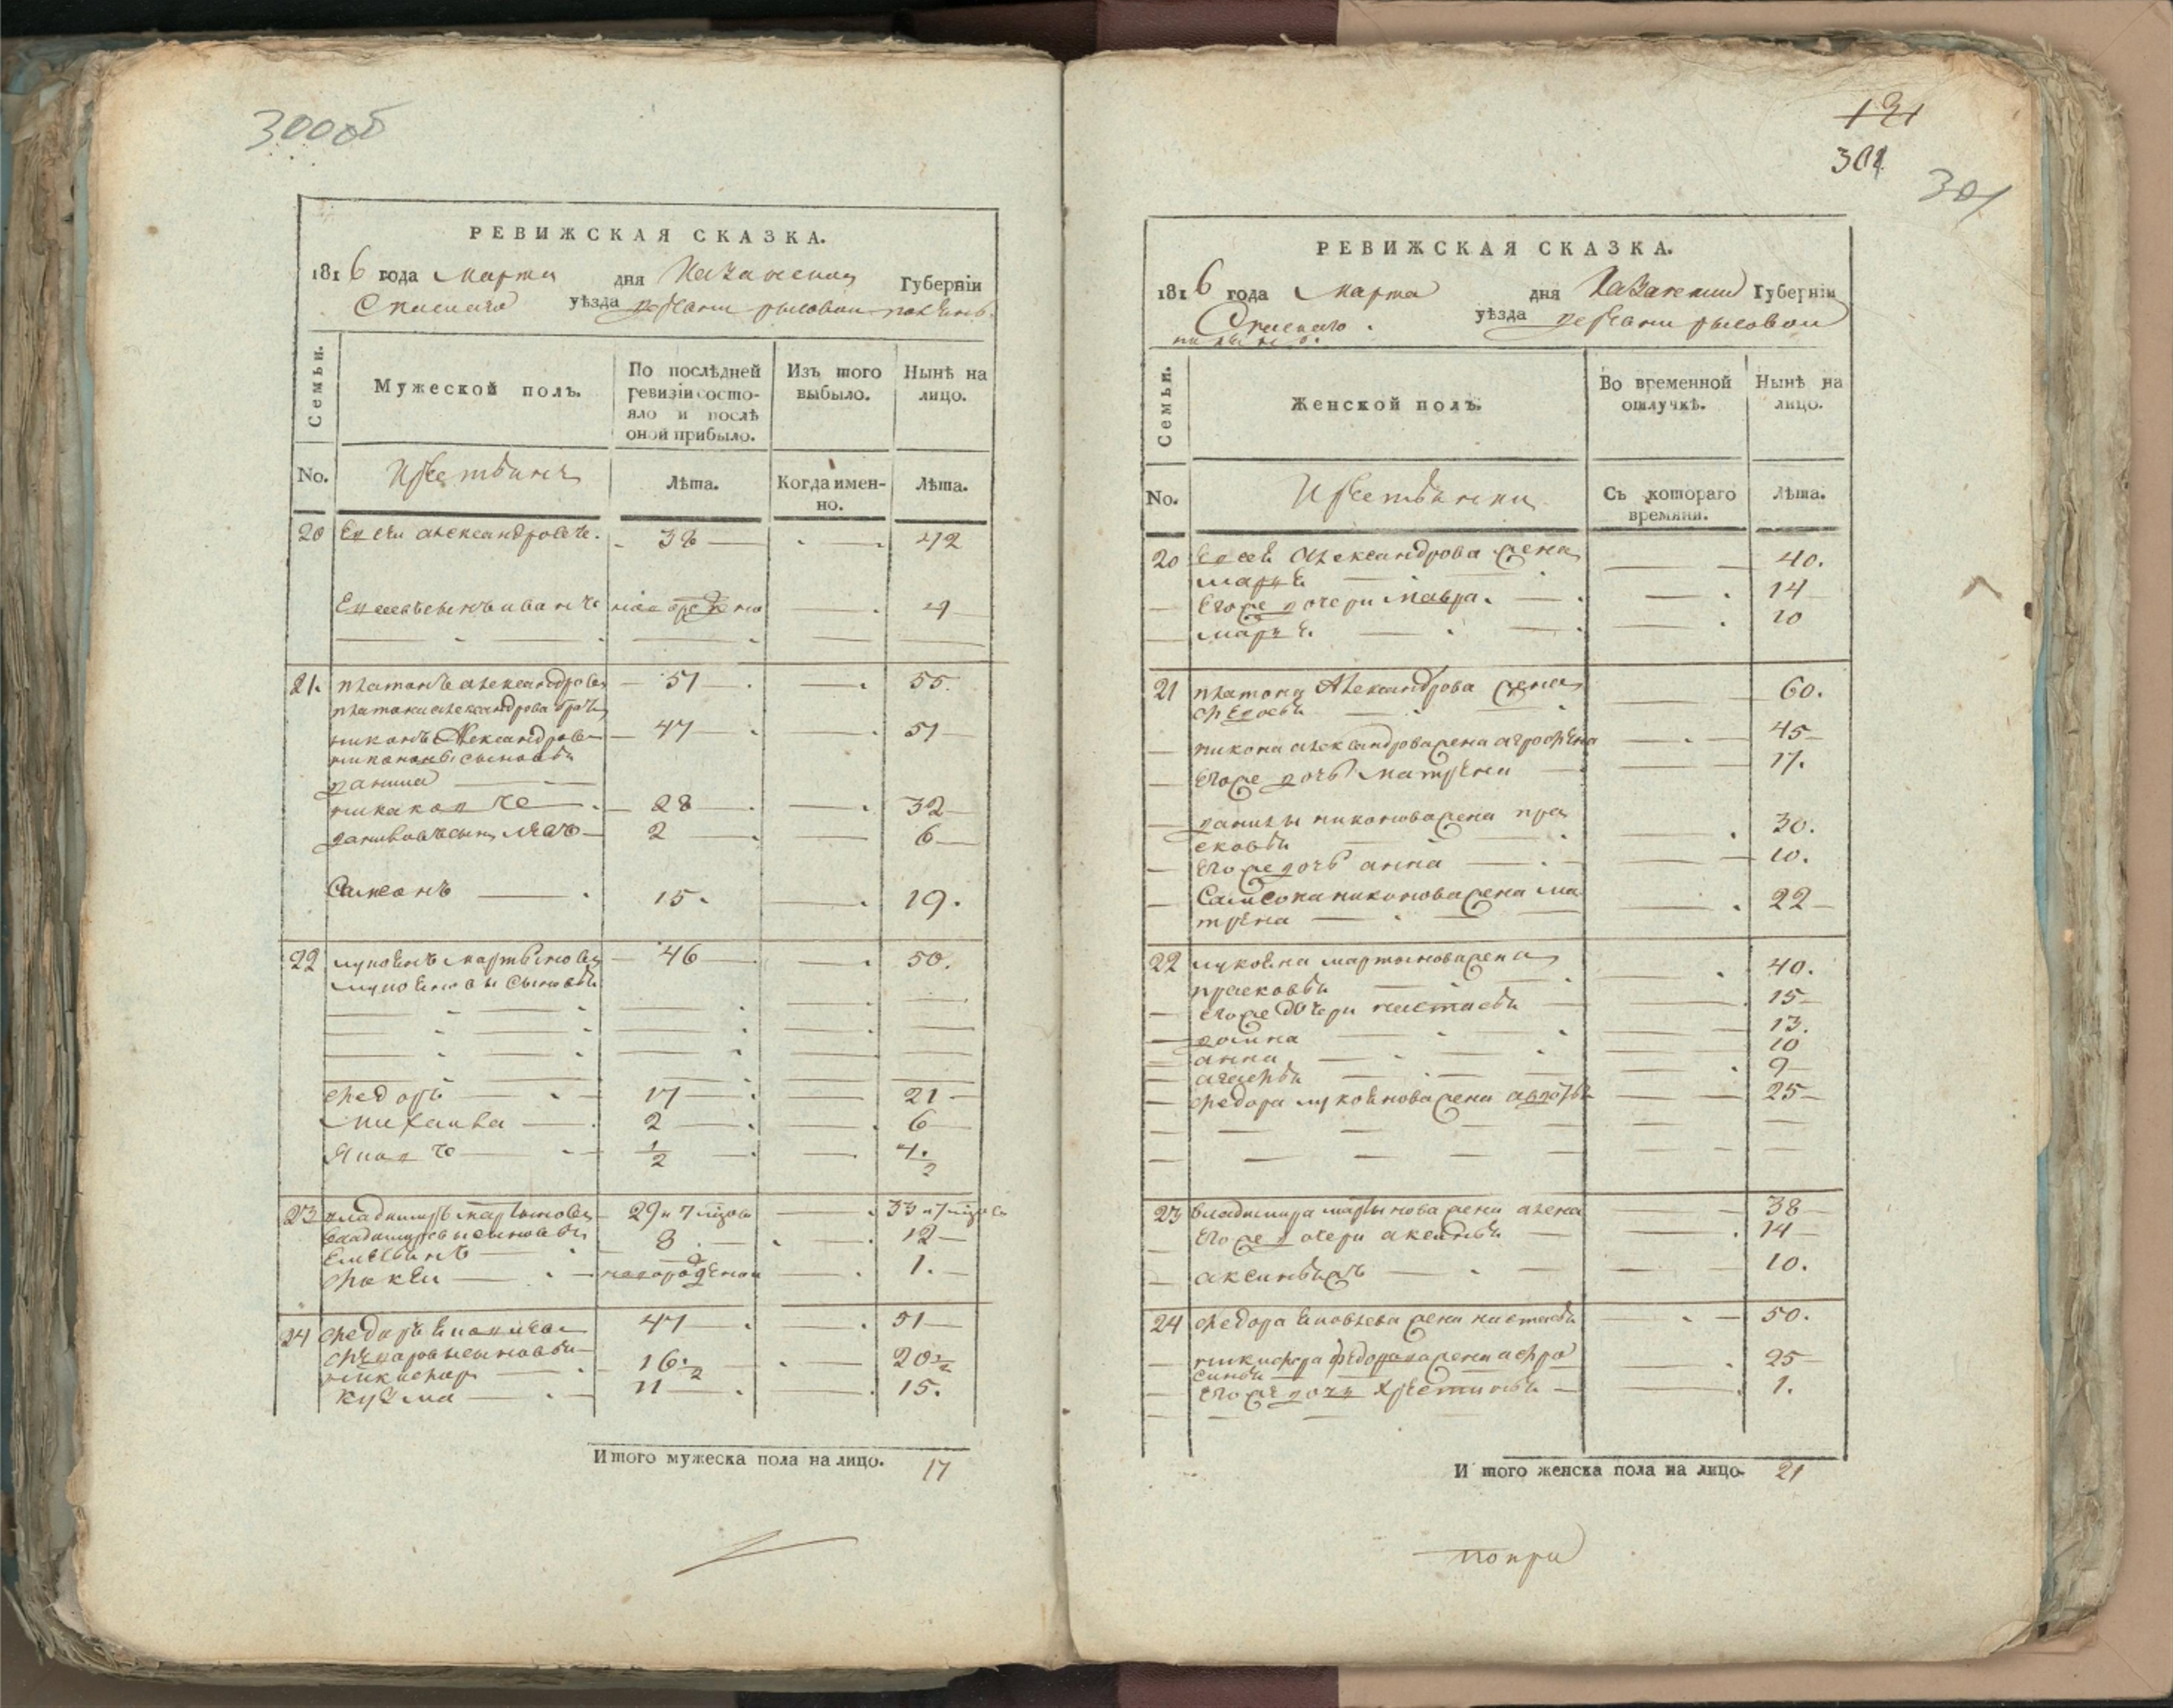 300об
РЕВИЖСКАЯ СКАЗКА.
1816 года марта дня Казанской Губерніи
Спаскаго уѣзда деревни рысовой
Семьи.
Мужеской полъ.
По послѣдней ревизіи состо-
яло и послѣ
оной прибыло.
Изъ того выбыло.
Нынѣ на лицо.
No.
Лѣта.
Когда имен-
но.
Лѣта.
20 Елсѣй александровъ. 38 42
Елсеевъ сынъ иванъ новорожденно 4
21. платонъ александровъ 51 55.
платона александрова братъ
никонъ Александровъ 47 51
никоновы сыновьи
данила
никакой же 28 32
даниловъ сынъ 2 6
Самсонъ 15. 19.
22 лукоянъ мартыновъ 46 50.
лукояновы сыновьи
федоръ 17 21
михаила 2 6
Яков же 1/2 4. 1/2
23 владимиръ мартыновъ 29 и 7 мцовъ 33 и 7 мцовъ
владимировы сыновьи
Емельянъ 8 12
фокѣи новорожденои 1.
24 федоръ 47 51
федоровы сыновьи
никифоръ 16. 1/2 20 1/2
кузма 11 15.
Итого мужеска пола на лицо. 17
131
301
301
РЕВИЖСКАЯ СКАЗКА.
1816 года марта дня Казанскои Губерніи
Спаскаго уѣзда деревни рысовои
Семьи.
Женской полъ.
Во временной
отлучкѣ.
Нынѣ на
лицо.
No.
Съ котораго
времяни.
Лѣта.
20 Елсея Александрова жена 40.
марья
Егоже дочери мавра. 14
марья. 10
21 платона Александрова жена 60.
федосья
никона александрова жена агрофена 45
Егоже дочь матрена 17.
данилы никонова жена пра
сковья 30.
егоже дочь анна 10.
Самсона никонова жена ма
трена 22
22 лукояна мартынова жена 40.
прасковья
егоже дочери настасья 15
домна 13.
анна 10
агафья 9
федора лукоянова жена авдотья 25
23 владимира мартынова жена алена 38
Егоже дочери аксинья 14
аксинья жъ 10.
24 федора жена настасья 50.
никифора федорова жена афро
синья 25
егоже дочь хрестинья 1.
И того женска пола на лицо. 21